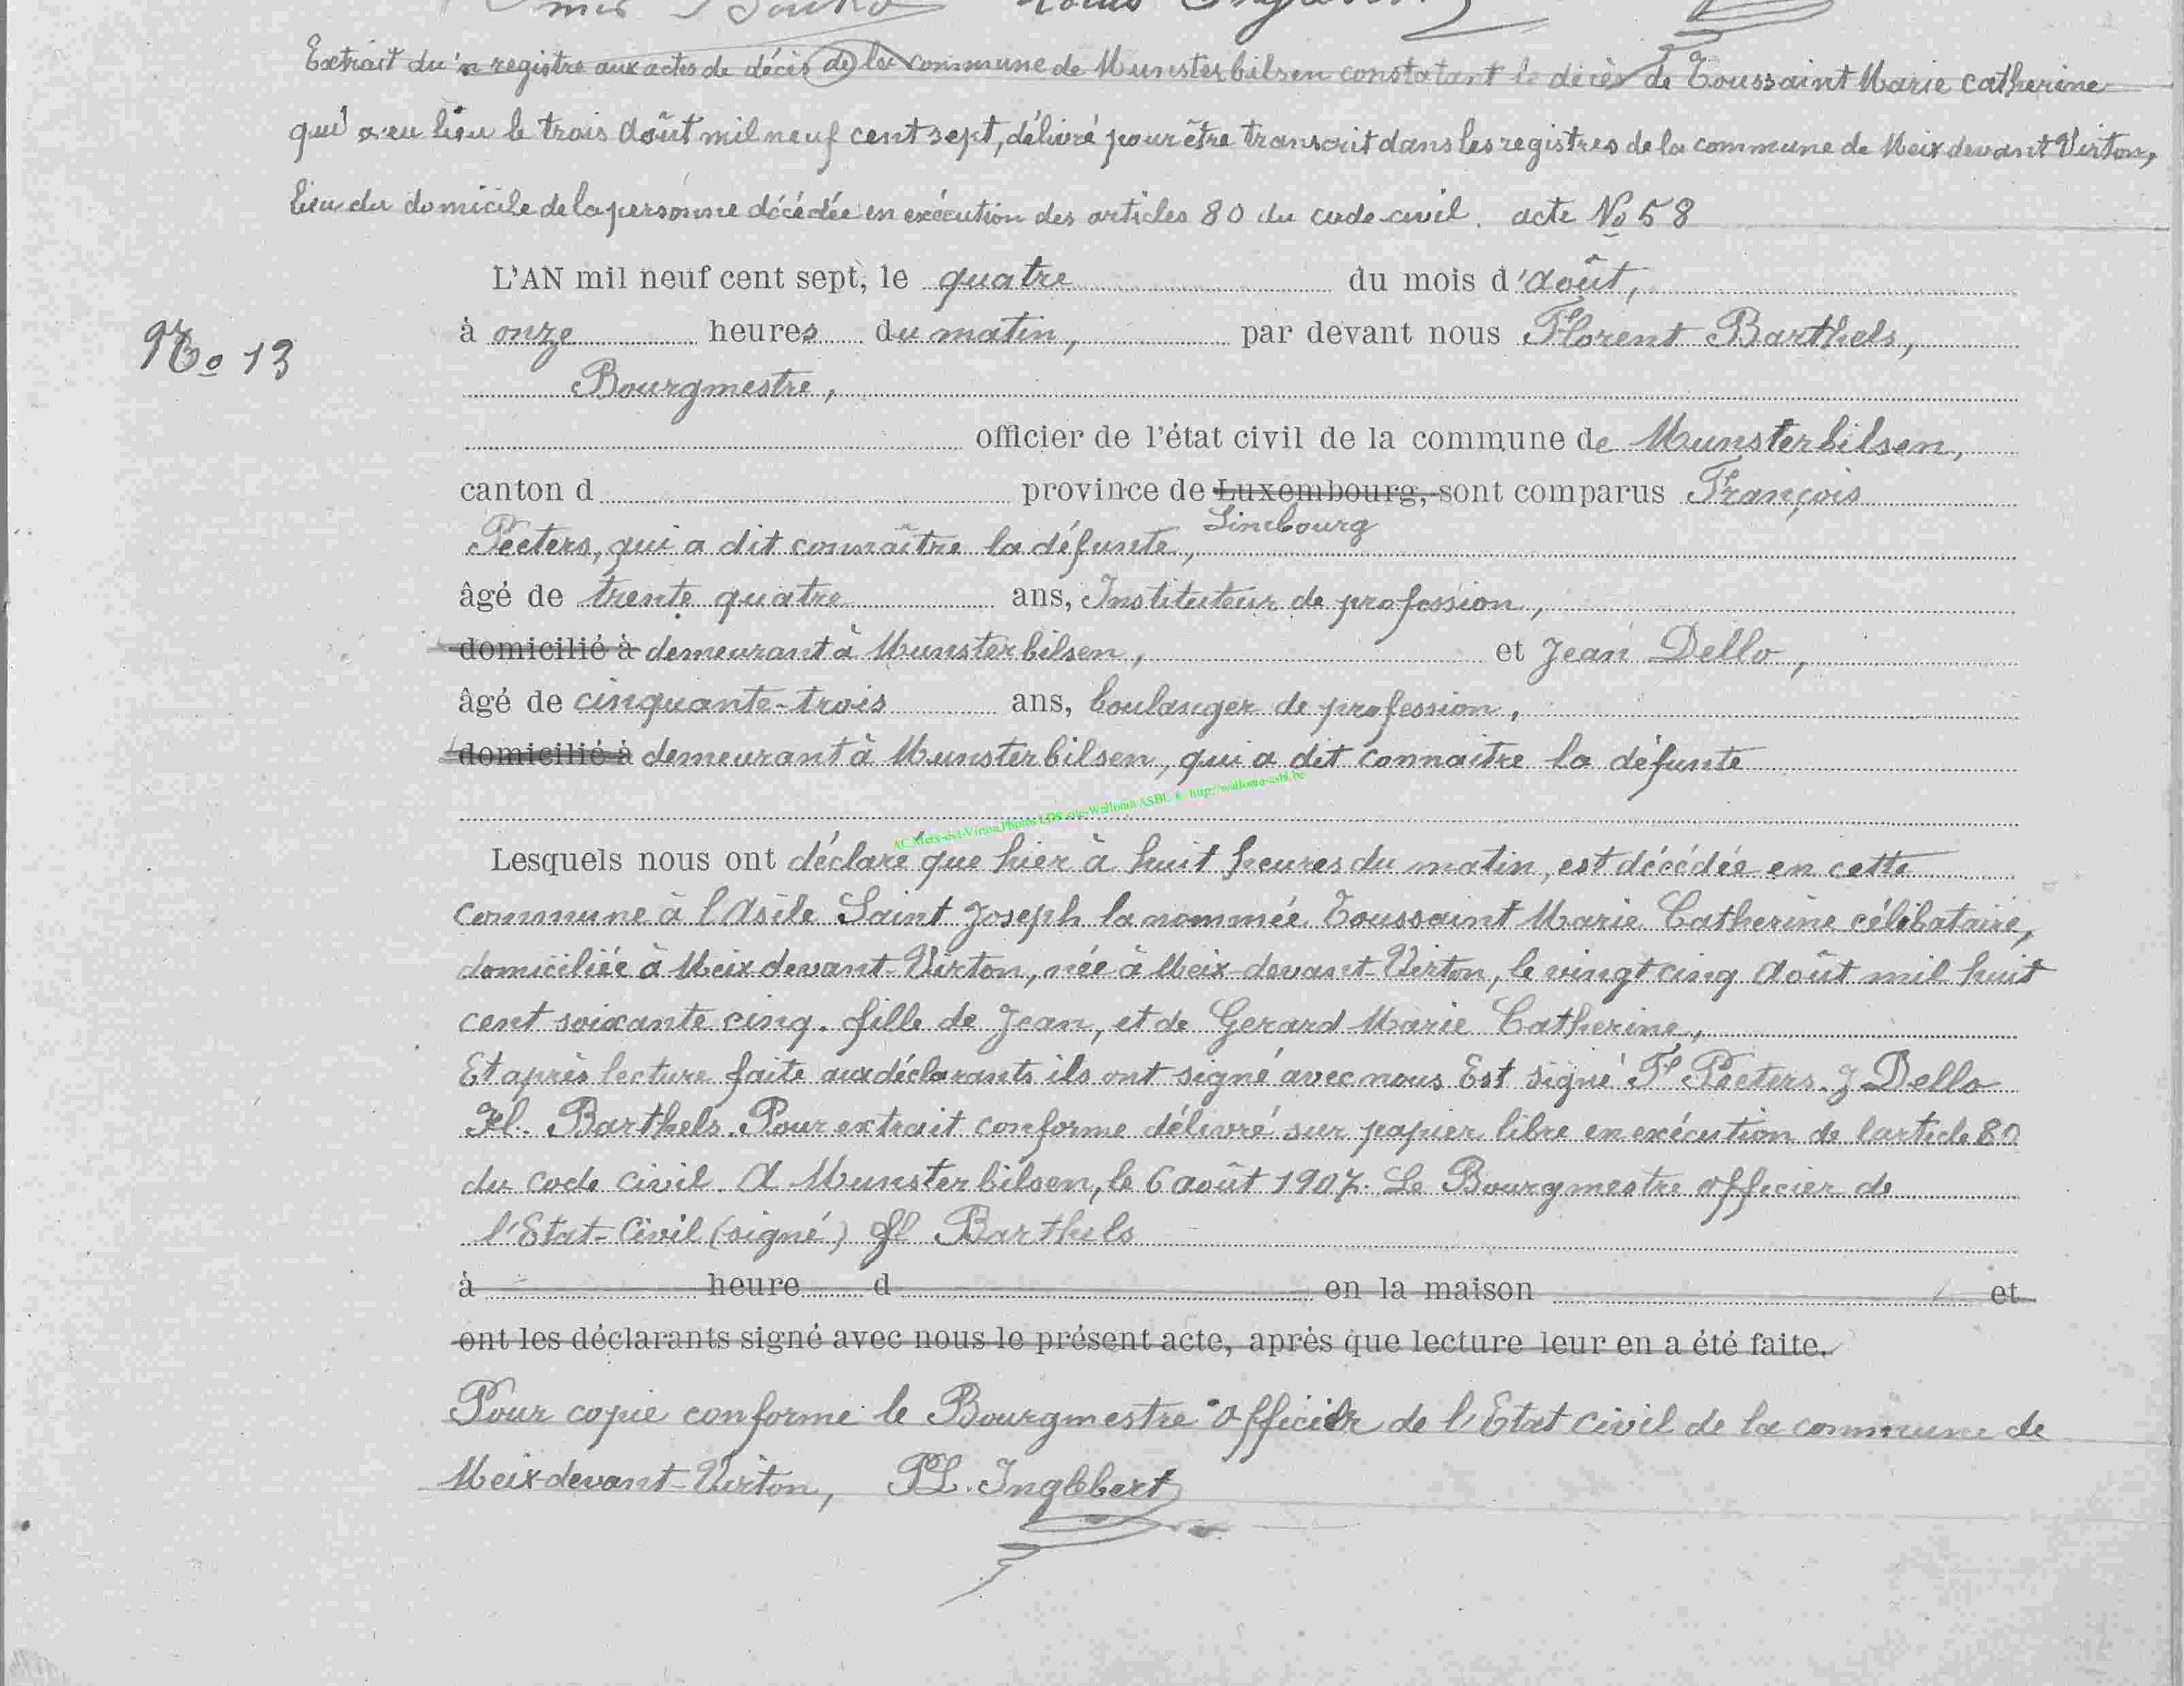 Louis
Extrait du'n registre aux actes de décès de la commune de Munsterbilsen constatant le décès de Toussaint Marie Catherine
qui a eu lieu le trois Août mil neuf cent sept, délivré pour être transcrit dans les registres de la commune de Meix devant Virton,
lieu du domicile de la personne décédée en exécution des articles 80 du code civil. acte No 58
L'AN mil neuf cent sept, le quatre du mois d'Août,
à onze heures du matin, par devant nous Florent Barthels,
No 13
Bourgmestre,
officier de l'état civil de la commune de Munsterbilsen,
canton d province de Luxembourg, sont comparus François
Limbourg
Peeters, qui a dit connaître la défunte,
âgé de trente quatre ans, Instituteur de profession,
domicilié à demeurant à Munsterbilsen, et Jean Dello,
âgé de cinquante-trois ans, boulanger de profession,
domicilié à demeurant à Munsterbilsen, qui a dit connaitre la défunte
AC Meix-dvt-Virton Photos LDS site Wallonia ASBL © http://wallonia-asbl.be
Lesquels nous ont déclaré que hier à huit heures du matin, est décédée en cette
commune à l'Asile Saint Joseph la nommée Toussaint Marie Catherine célibataire,
domiciliée à Meix devant-Virton, née à Meix-devant-Virton, le vingt cinq Août mil huit
cent soixante cinq. fille de Jean, et de Gerard Marie Catherine,
Et après lecture faite aux déclarants ils ont signé avec nous Est signé Fs Peeters. J Dello
Fl. Barthels. Pour extrait conforme délivré sur papier libre en exécution de l'article 80
du code civil. A Munsterbilsen, le 6 août 1907. Le Bourgmestre officier de
l'Etat-Civil (signé) fl Barthels
à heure d en la maison et
ont les déclarants signé avec nous le présent acte, après que lecture leur en a été faite.
Pour copie conforme le Bourgmestre Officier de l'Etat civil de la commune de
Meix-devant-Virton, PL. Inglebert